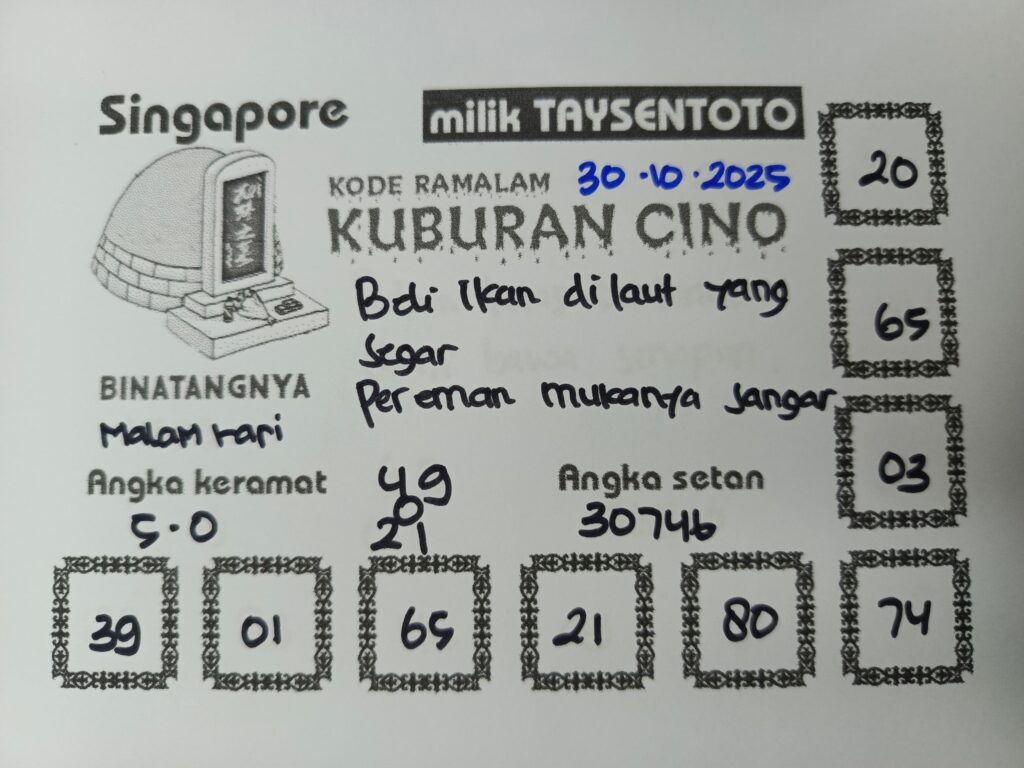 Singapore
milik TAYSENTOTO
KODE RAMALAM 30.10.2025
KUBURAN CINO
Beli Ikan di laut yang
segar
Pereman mukanya sangar
BINATANGNYA
Malam hari
Angka keramat
5.0
49
0
21
Angka setan
30746
20
65
03
39 01 65 21 80 74